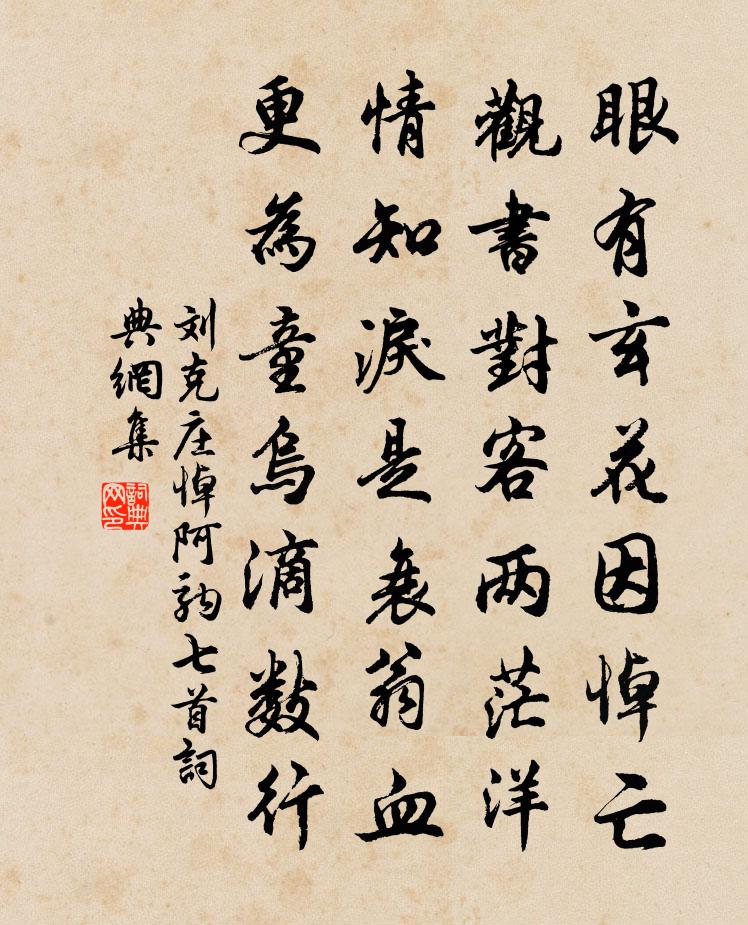 眼有玄花因悼亡
觀書對客两茫洋
情知淚是衰翁血
更為童烏滴數行
刘克庄悼阿駒七首詞
典網集
詞典
网印